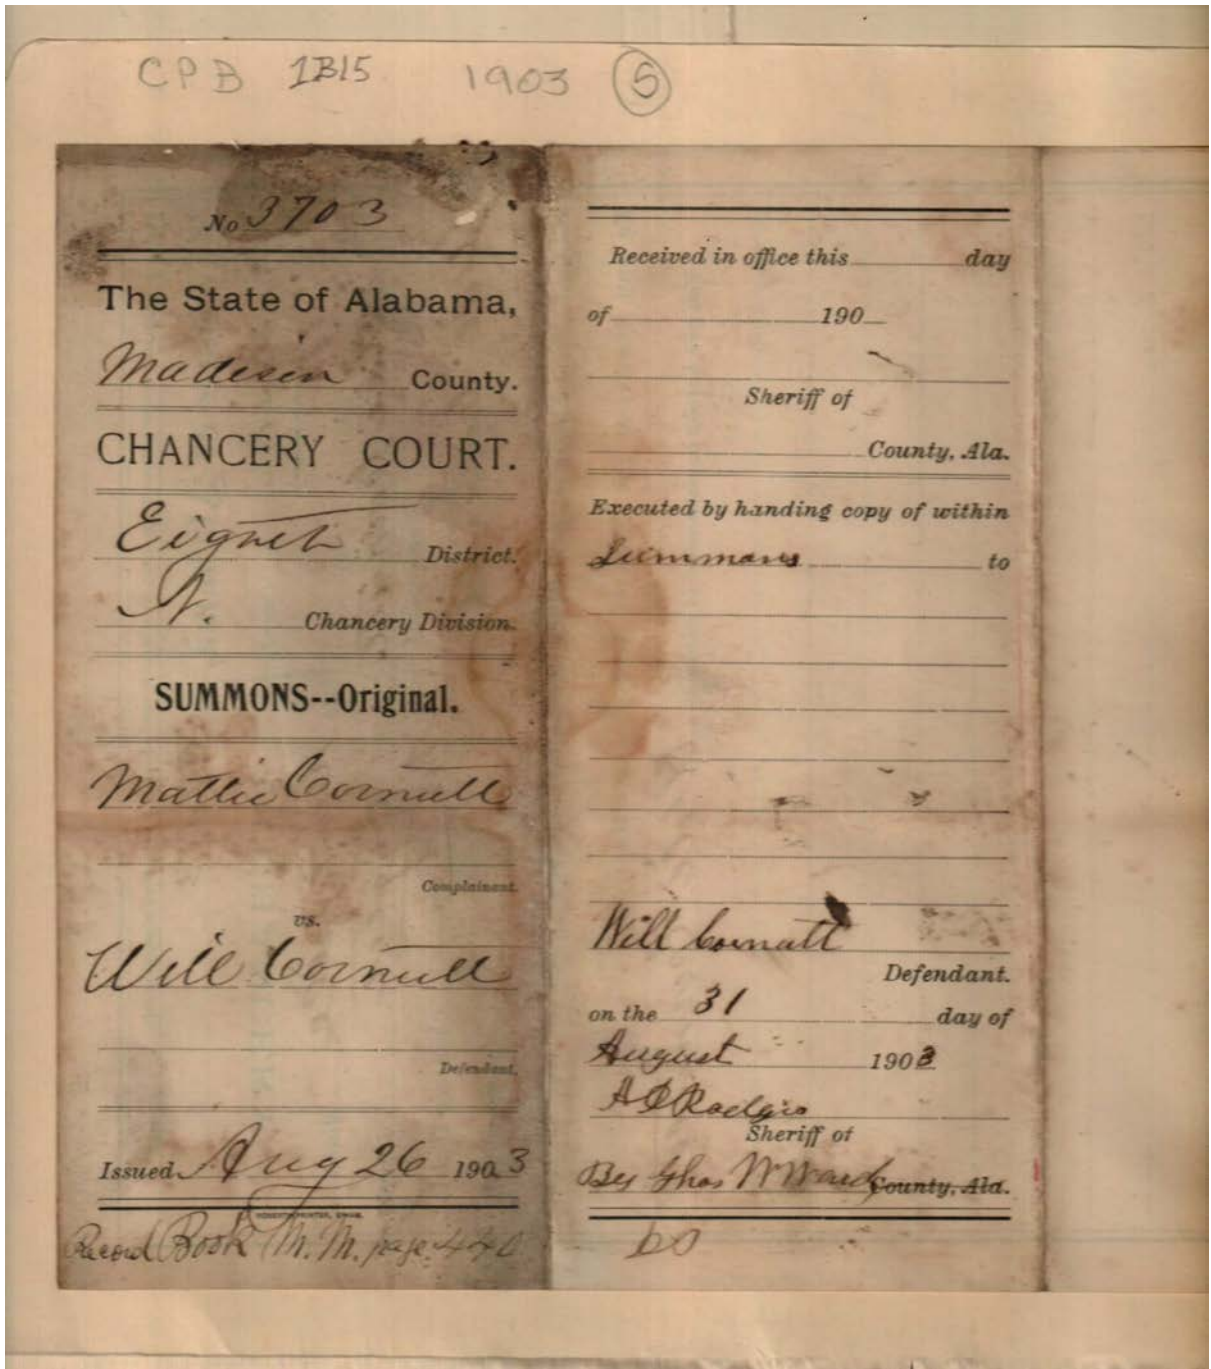 CPB 1B15 1903 5
No 3703
The State of Alabama,
Madison County.
CHANCERY COURT.
Eighth District.
N. Chancery Division.
SUMMONS--Original.
Mattie Cornutt
Complainant.
vs.
Will Cornutt
Defendant.
Issued Aug 26 1903
Record Book M. M. page 440
Received in office this day
of 190
Sheriff of
County, Ala.
Executed by handing copy of within
Summons to
Will Cornutt
Defendant.
on the 31 day of
August 1903
A D Rodgers
Sheriff of
By Chas W Ward County, Ala.